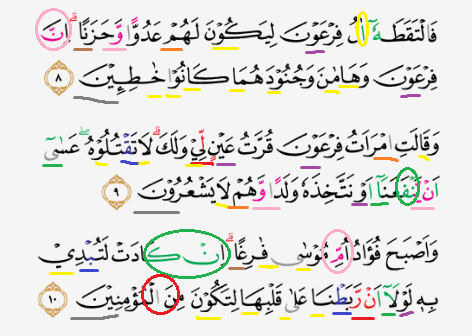 فَالْتَقَطَهٗٓ اٰلُ فِرْعَوْنَ لِيَكُوْنَ لَهُمْ عَدُوًّا وَّحَزَنًاۗ اِنَّ
فِرْعَوْنَ وَهَامٰنَ وَجُنُوْدَهُمَا كَانُوْا خٰطِـِٕيْنَ ٨
وَقَالَتِ امْرَاَتُ فِرْعَوْنَ قُرَّتُ عَيْنٍ لِّيْ وَلَكَۗ لَا تَقْتُلُوْهُ ۖعَسٰٓى
اَنْ يَّنْفَعَنَآ اَوْ نَتَّخِذَهٗ وَلَدًا وَّهُمْ لَا يَشْعُرُوْنَ ٩
وَاَصْبَحَ فُؤَادُ اُمِّ مُوْسٰى فٰرِغًاۗ اِنْ كَادَتْ لَتُبْدِيْ
بِهٖ لَوْلَآ اَنْ رَّبَطْنَا عَلٰى قَلْبِهَا لِتَكُوْنَ مِنَ الْمُؤْمِنِيْنَ ١٠